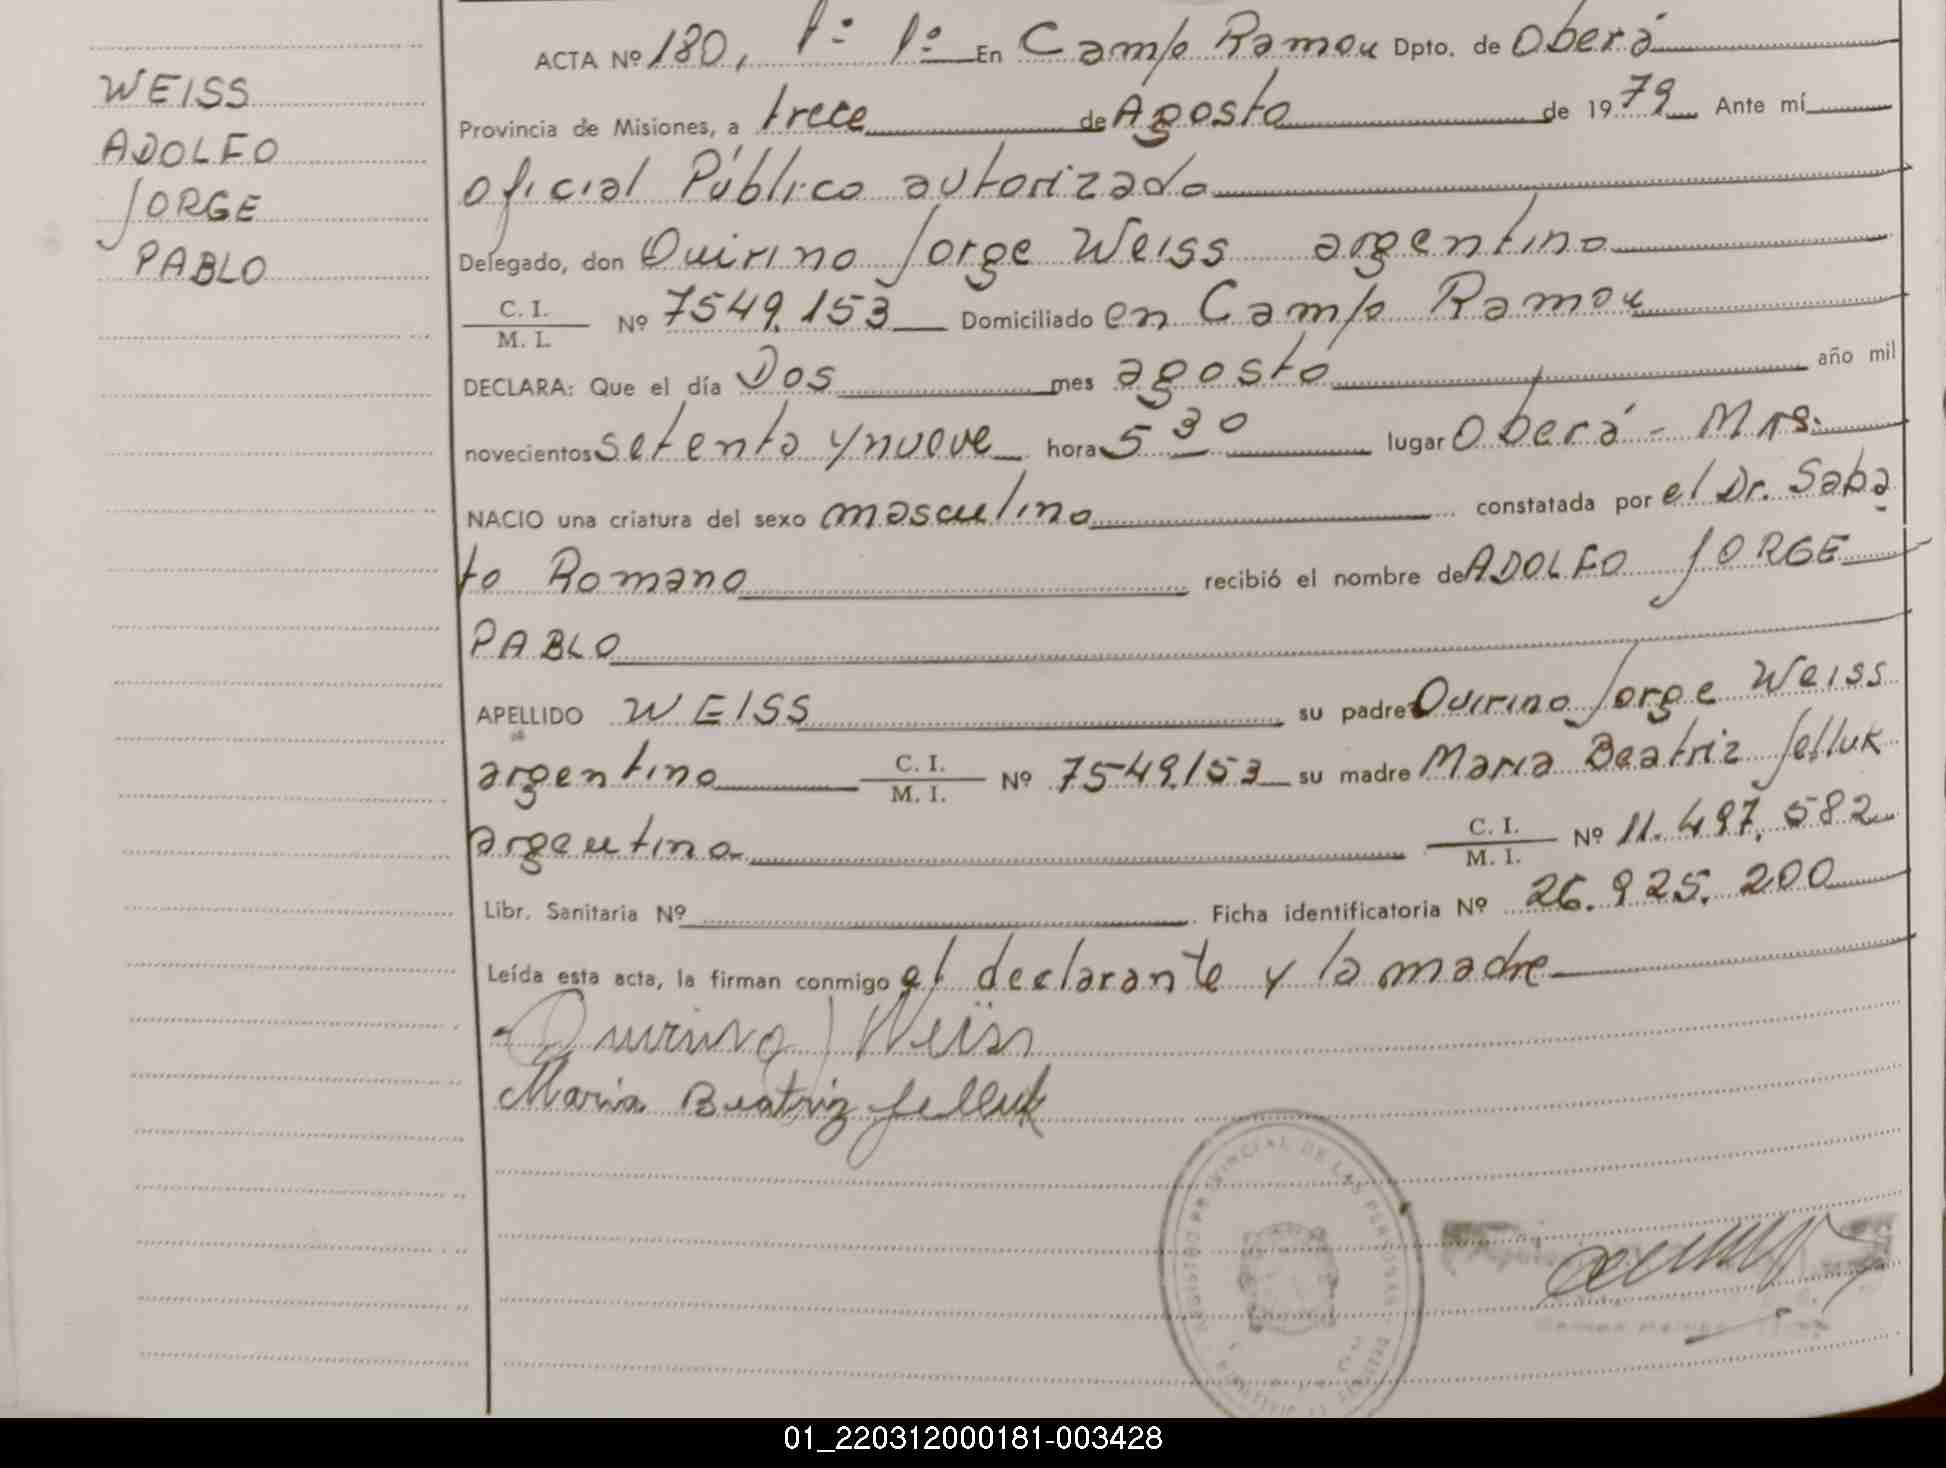 WEISS
ADOLFO
JORGE
PABLO
ACTA Nº 180, 1º 1º En Campo Ramon Dpto. de Oberá
Provincia de Misiones, a trece de Agosto de 1979 Ante mí
oficial Público autorizado
Delegado, don Quirino Jorge Weiss argentino
C. I.
M. I. Nº 7549.153 Domiciliado en Campo Ramon
DECLARA: Que el día Dos mes agosto año mil
novecientos setenta y nueve hora 5 30 lugar Oberá - Mns.
NACIO una criatura del sexo masculino constatada por el Dr. Saba
to Romano recibió el nombre de ADOLFO JORGE
PABLO
APELLIDO WEISS su padre Quirino Jorge Weiss
argentino C. I. M. I. Nº 7549.153 su madre Maria Beatriz Jelluk
argentina C. I. M. I. Nº 11.497.582
Libr. Sanitaria Nº Ficha identificatoria Nº 26.925.200
Leída esta acta, la firman conmigo el declarante y la madre
Quirino J Weiss
Maria Beatriz Jelluk
REGISTRO PROVINCIAL DE LAS PERSONAS
01_220312000181-003428